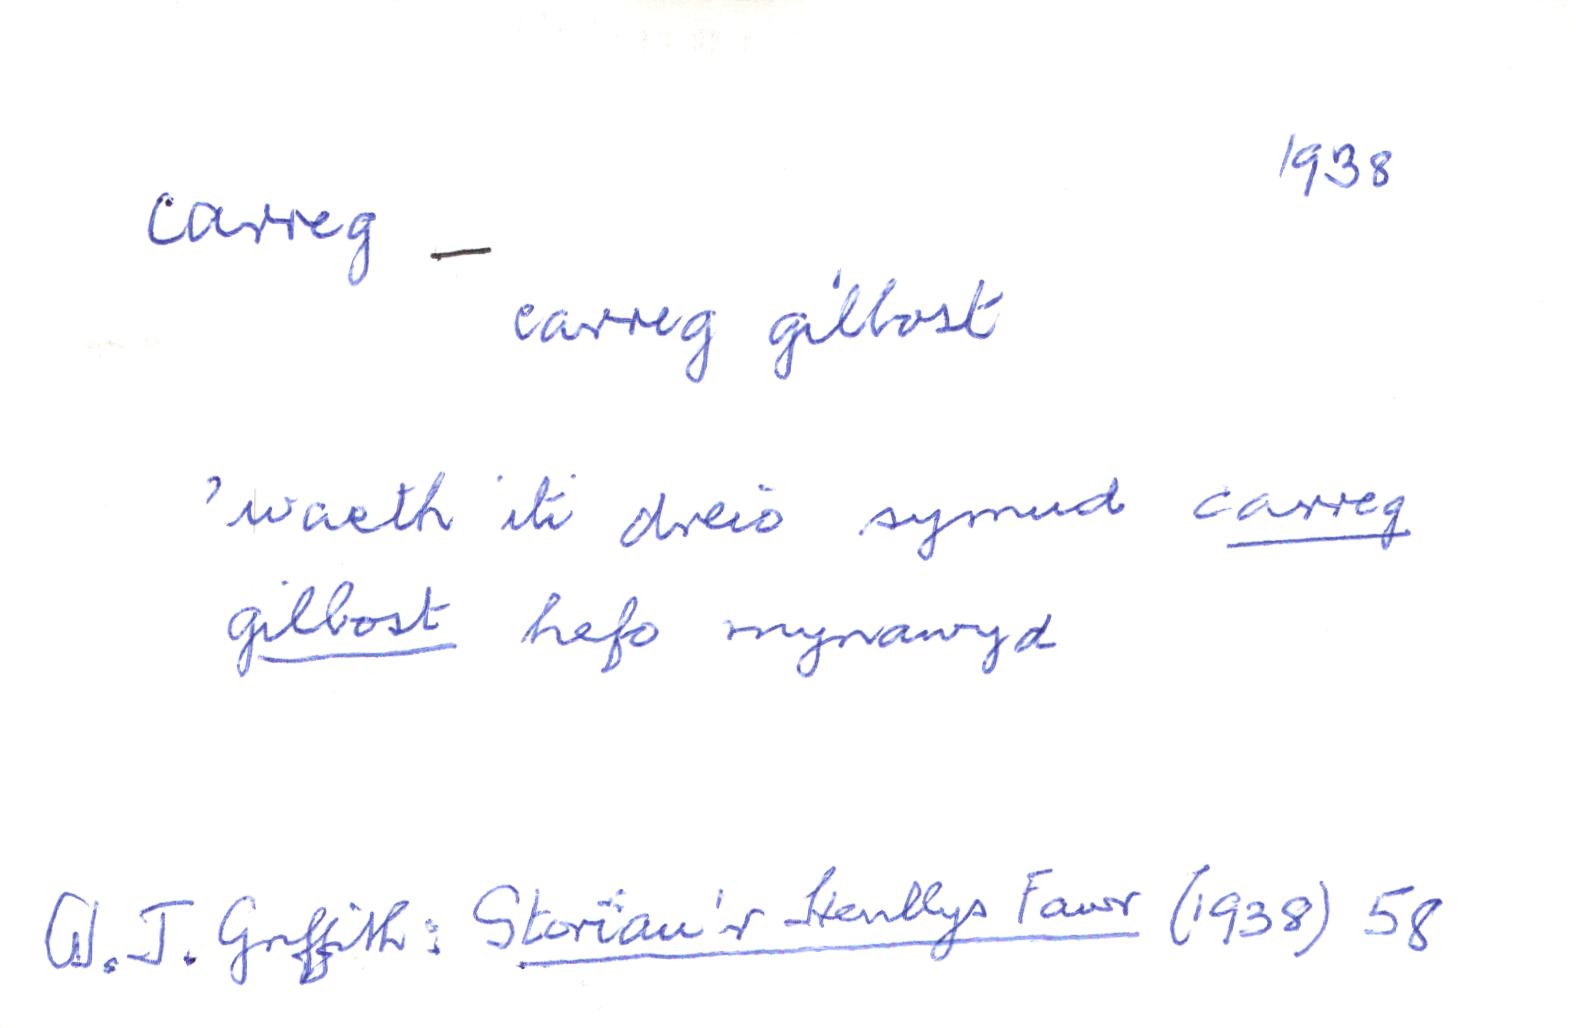 1938
carreg —
carreg gilbost
'waeth iti dreio symud carreg
gilbost hefo mynawyd
W. J. Griffith: Storïau'r Henllys Fawr (1938) 58